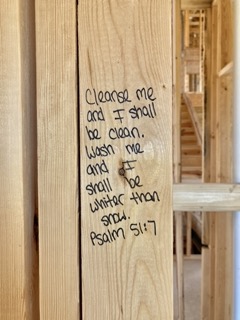 Cleanse me
and I shall
be clean.
Wash me
and I
shall be
whiter than
snow.
Psalm 51:7